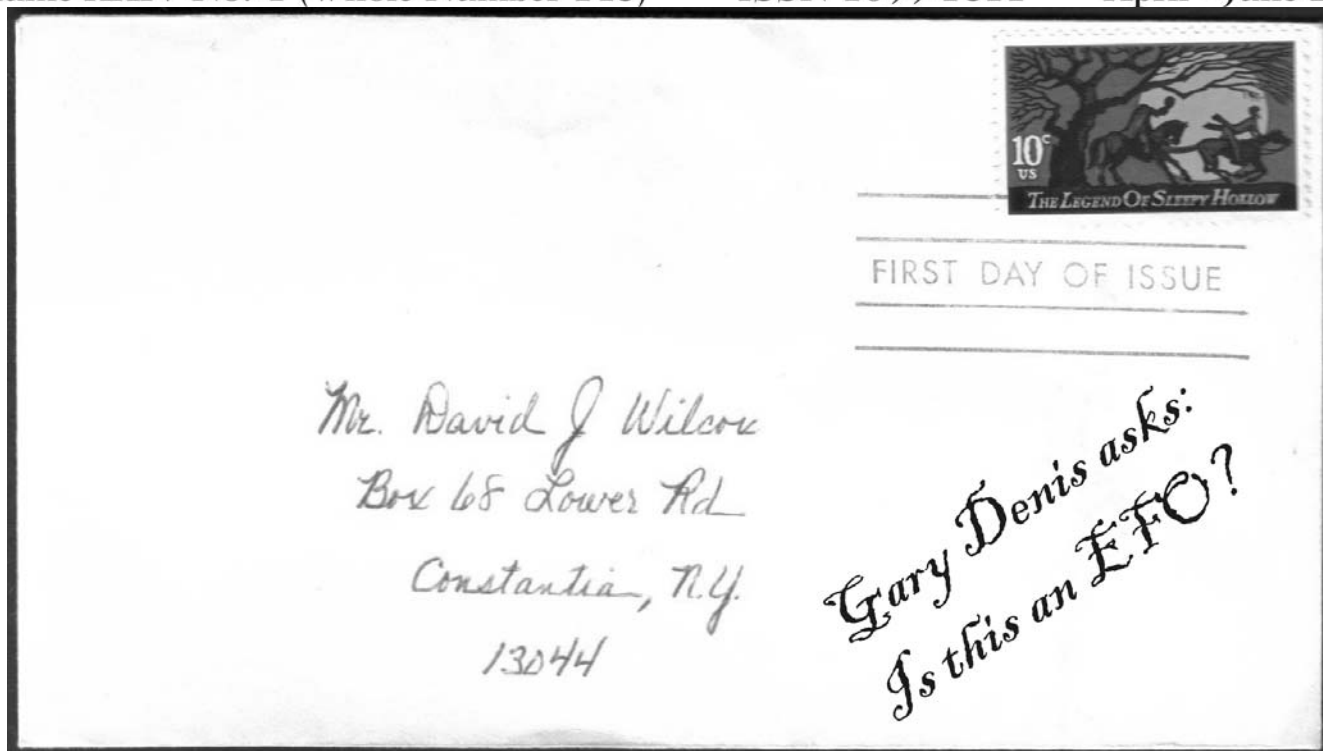 10c
US
THE LEGEND OF SLEEPY HOLLOW
FIRST DAY OF ISSUE
Mr. David J Wilcox
Box 68 Lower Rd
Constantia, N.Y.
13044
Gary Denis asks:
Is this an EFO?